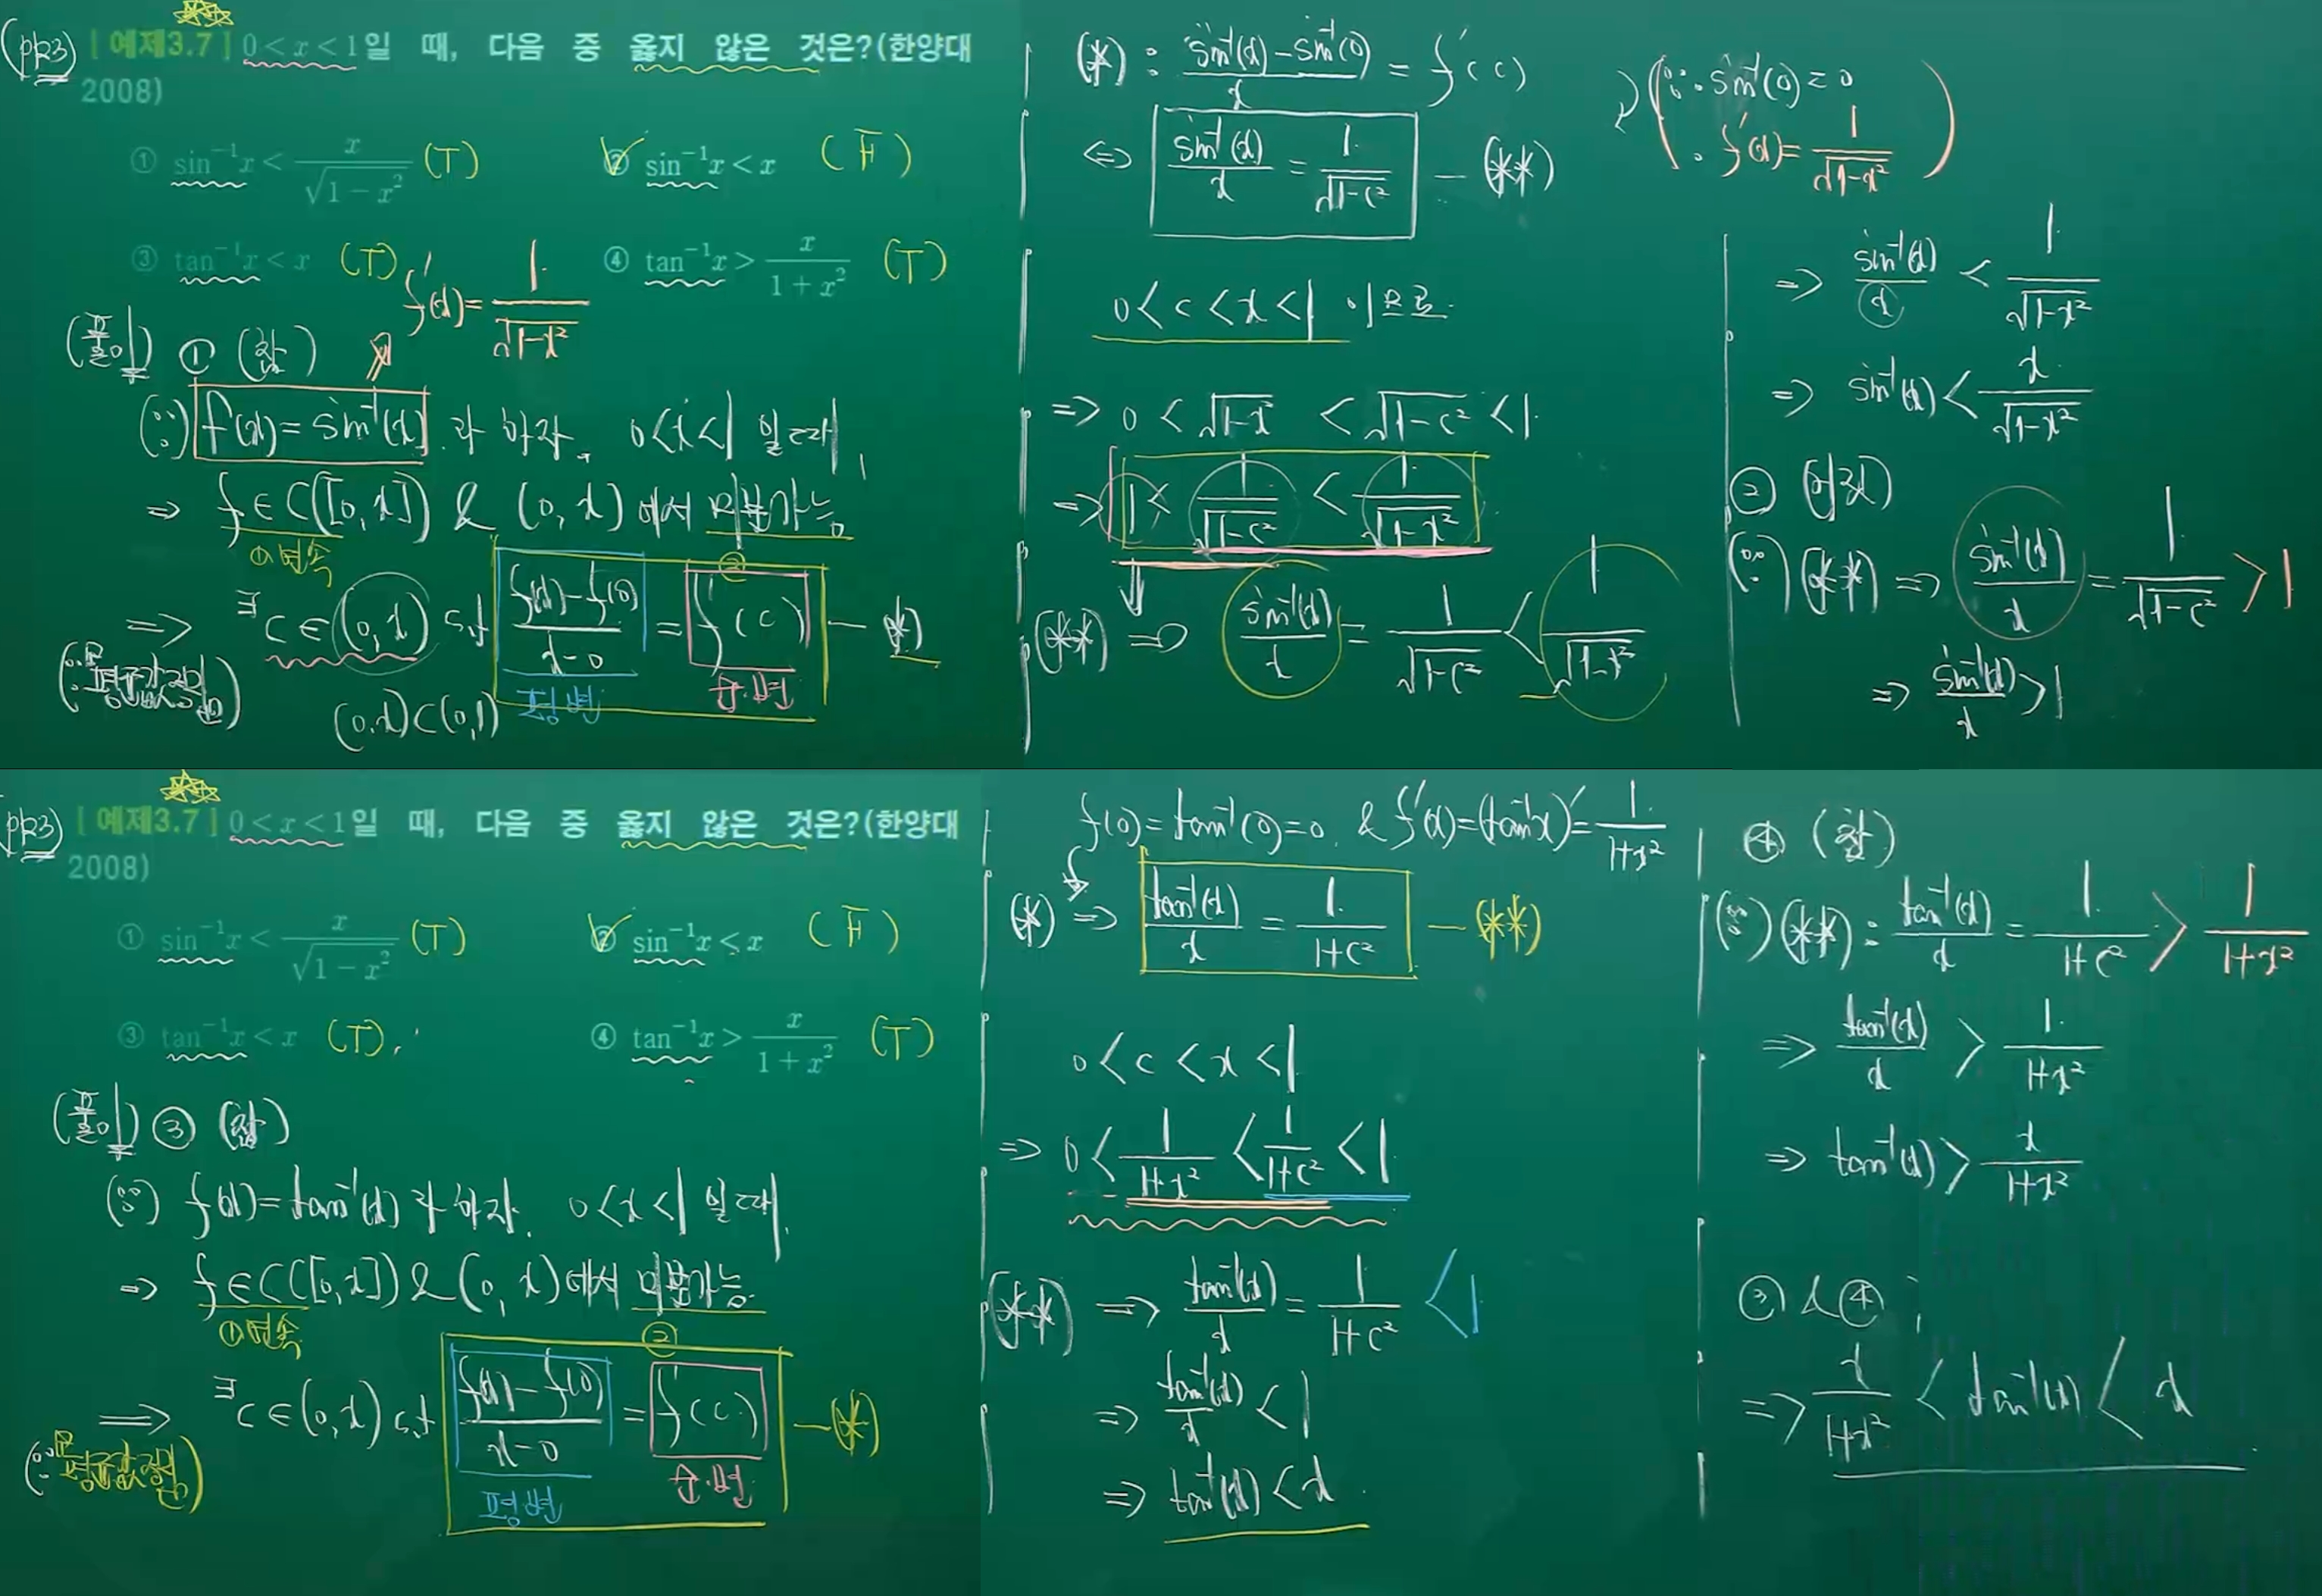 (p123) [예제3.7] 0 < x < 1일 때, 다음 중 옳지 않은 것은?(한양대
2008)
① sin⁻¹x < x/√(1−x²) (T) ② sin⁻¹x < x (F)
③ tan⁻¹x < x (T) ④ tan⁻¹x > x/(1+x²) (T)
f'(x) = 1/√(1−x²)
(풀이) ① (참)
(∵) f(x) = sin⁻¹(x) 라 하자. 0<x<1 일 때,
⇒ f∈C([0,x]) & (0,x) 에서 미분가능
① 연속 ②
⇒ ∃c∈(0,x) s.t (f(x)−f(0))/(x−0) = f'(c) — (*)
(∵ 평균값 정리) 평.변 순.변
(0,x)⊂(0,1)
(*) : (sin⁻¹(x)−sin⁻¹(0))/x = f'(c)
(∵ · sin⁻¹(0) = 0
· f'(x) = 1/√(1−x²))
⇔ sin⁻¹(x)/x = 1/√(1−c²) — (**)
0 < c < x < 1 이므로
⇒ 0 < √(1−x²) < √(1−c²) < 1
⇒ 1 < 1/√(1−c²) < 1/√(1−x²)
(**) ⇒ sin⁻¹(x)/x = 1/√(1−c²) < 1/√(1−x²)
⇒ sin⁻¹(x)/x < 1/√(1−x²)
⇒ sin⁻¹(x) < x/√(1−x²)
② (거짓)
(∵) (**) ⇒ sin⁻¹(x)/x = 1/√(1−c²) > 1
⇒ sin⁻¹(x)/x > 1
(p123) [예제3.7] 0 < x < 1일 때, 다음 중 옳지 않은 것은?(한양대
2008)
① sin⁻¹x < x/√(1−x²) (T) ② sin⁻¹x < x (F)
③ tan⁻¹x < x (T) ④ tan⁻¹x > x/(1+x²) (T)
(풀이) ③ (참)
(∵) f(x) = tan⁻¹(x) 라 하자. 0<x<1 일 때,
⇒ f∈C([0,x]) & (0,x) 에서 미분가능
① 연속 ②
⇒ ∃c∈(0,x) s.t (f(x)−f(0))/(x−0) = f'(c) — (*)
(∵ 평균값 정리) 평.변 순.변
f(0) = tan⁻¹(0) = 0. & f'(x) = (tan⁻¹x)' = 1/(1+x²)
(*) ⇒ tan⁻¹(x)/x = 1/(1+c²) — (**)
0 < c < x < 1
⇒ 0 < 1/(1+x²) < 1/(1+c²) < 1
(**) ⇒ tan⁻¹(x)/x = 1/(1+c²) < 1
⇒ tan⁻¹(x)/x < 1
⇒ tan⁻¹(x) < x
④ (참)
(∵) (**) : tan⁻¹(x)/x = 1/(1+c²) > 1/(1+x²)
⇒ tan⁻¹(x)/x > 1/(1+x²)
⇒ tan⁻¹(x) > x/(1+x²)
③ & ④ ;
⇒ x/(1+x²) < tan⁻¹(x) < x